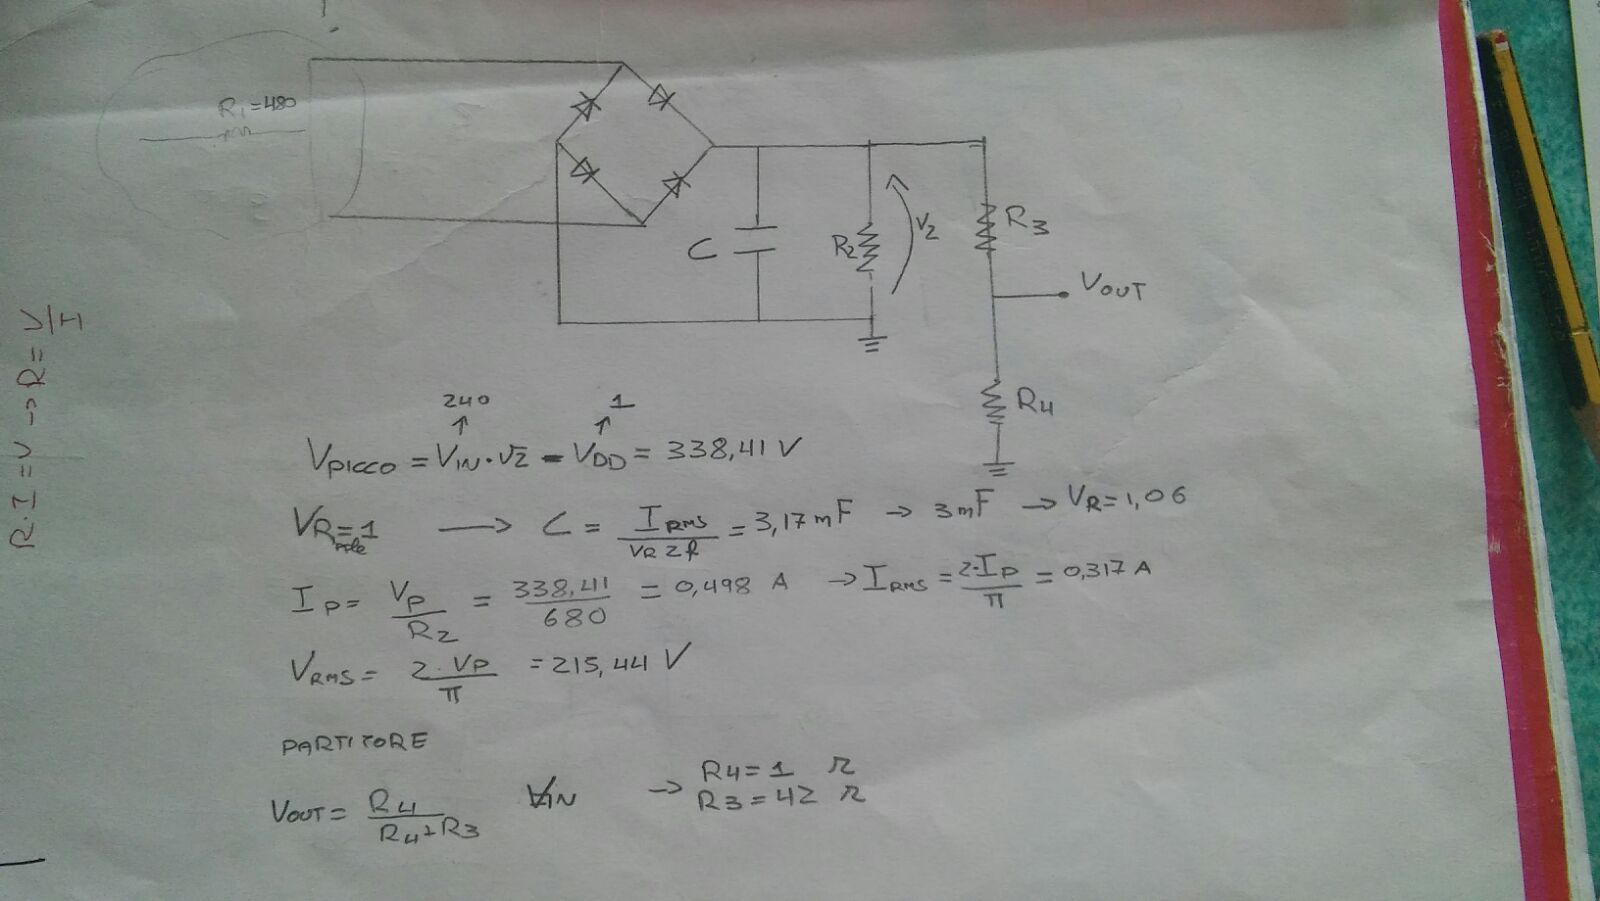 R1=480
C
R2
V2
R3
VOUT
R4
R.I=V → R= V/I
240 1
VPICCO = VIN.√2 - VDD = 338,41 V
VR=1 → C = IRMS / VR 2f = 3,17mF → 3mF → VR=1,06
IP= VP / R2 = 338,41 / 680 = 0,498 A → IRMS = 2.IP / π = 0,317 A
VRMS= 2.VP / π = 215,44 V
PARTITORE
VOUT= R4 / R4+R3 VIN → R4=1 Ω
R3=42 Ω